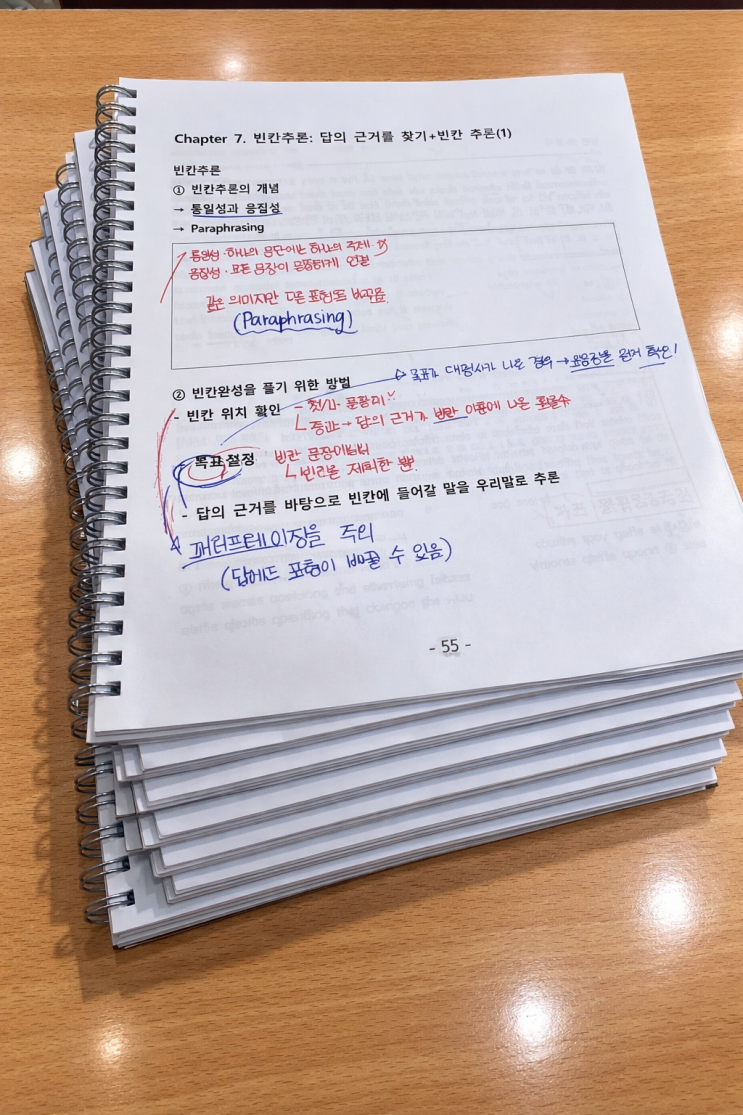 Chapter 7. 빈칸추론: 답의 근거를 찾기+빈칸 추론(1)
빈칸추론
① 빈칸추론의 개념
→ 통일성과 응집성
→ Paraphrasing
통일성 · 하나의 문단에는 하나의 주제
응집성 · 모든 문장이 연결
같은 의미지만 다른 표현으로 바꾸는
(Paraphrasing)
② 빈칸완성을 풀기 위한 방법
목표가 대명사가 나온 경우 → 먼저 확인!
- 빈칸 위치 확인
- 첫/
중간 → 답의 근거가 빈칸 이후에 나올
목표설정
빈칸
제외한
- 답의 근거를 바탕으로 빈칸에 들어갈 말을 우리말로 추론
주의
(답에도 표현이 바뀔 수 있음)
- 55 -